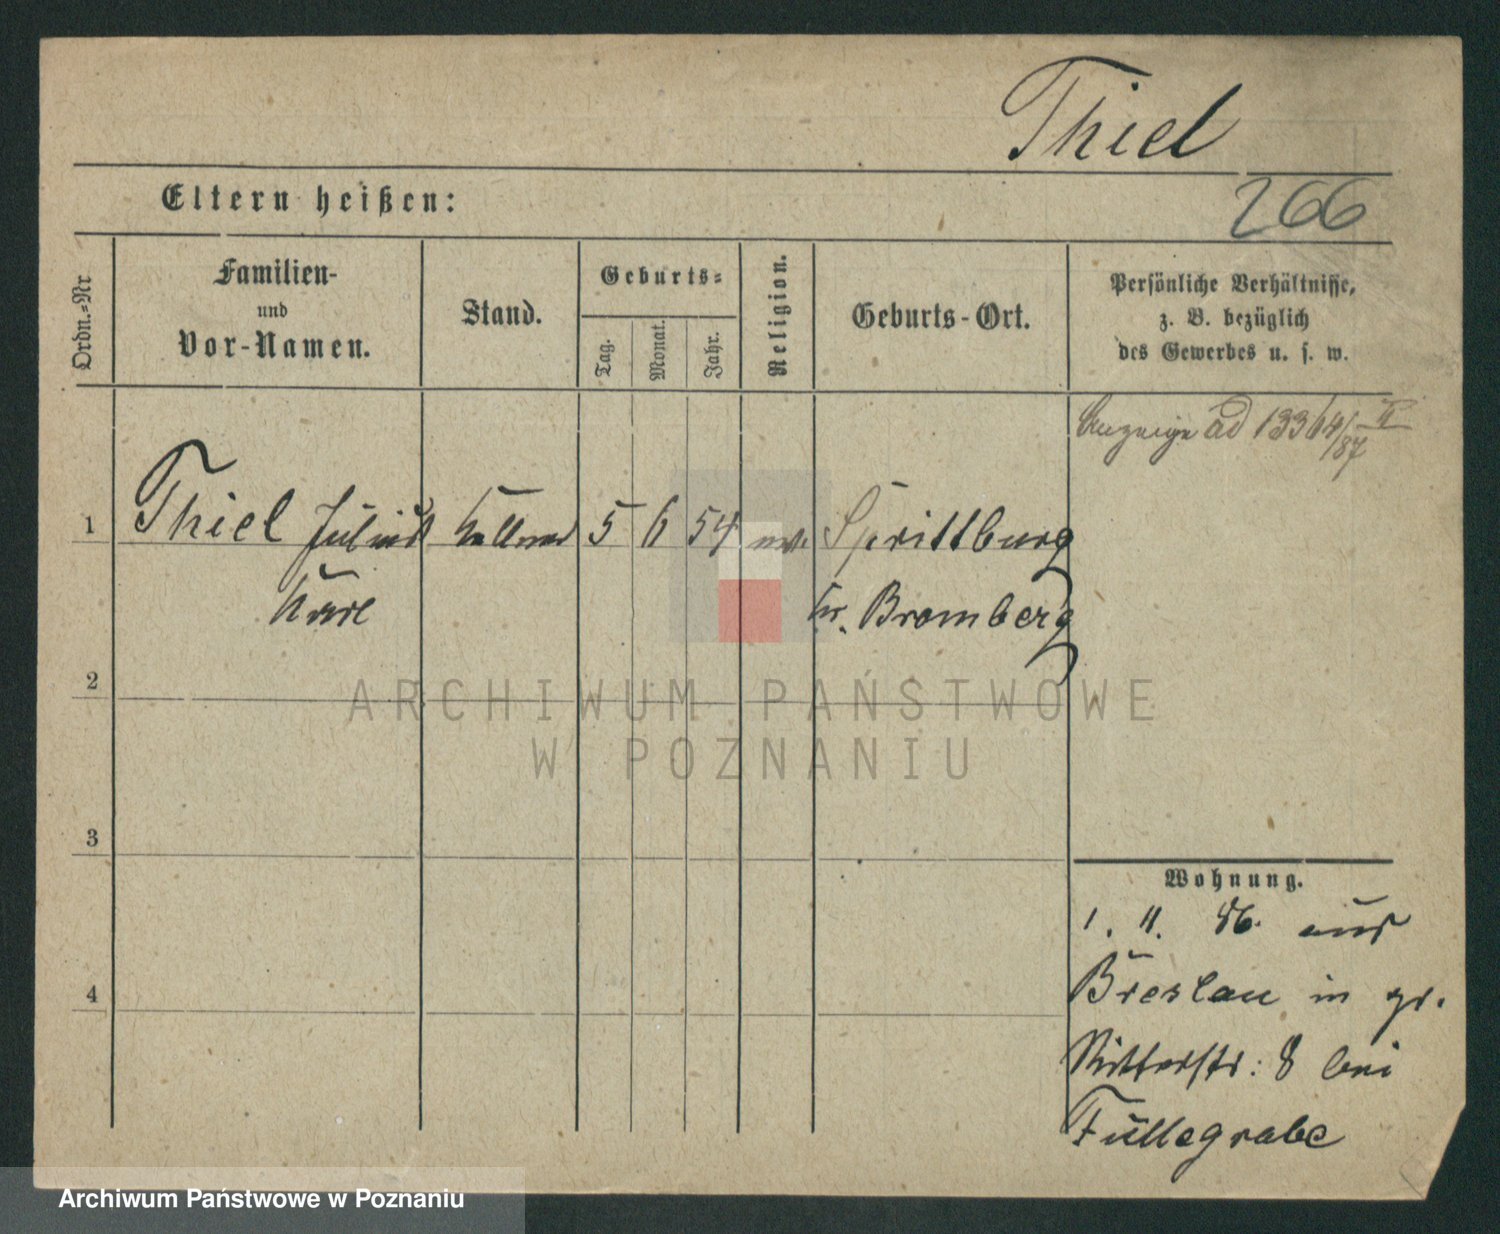 Thiel
266
Eltern heißen:
Ordn.=Nr
Familien-
und
Vor-Namen.
Stand.
Geburts=
Tag.
Monat.
Jahr.
Religion.
Geburts-Ort.
Persönliche Verhältnisse,
z. B. bezüglich
des Gewerbes u. s. w.
Anzeige ad 13364/87 II
1 Thiel Julius Kellner 5 6 54 ev. Sprittburg
Karl Kr. Bromberg
2
3
4
ARCHIWUM PAŃSTWOWE
W POZNANIU
Wohnung.
1. 11. 86. aus
Breslau in gr.
Ritterstr: 8 bei
Füllegrabe
Archiwum Państwowe w Poznaniu